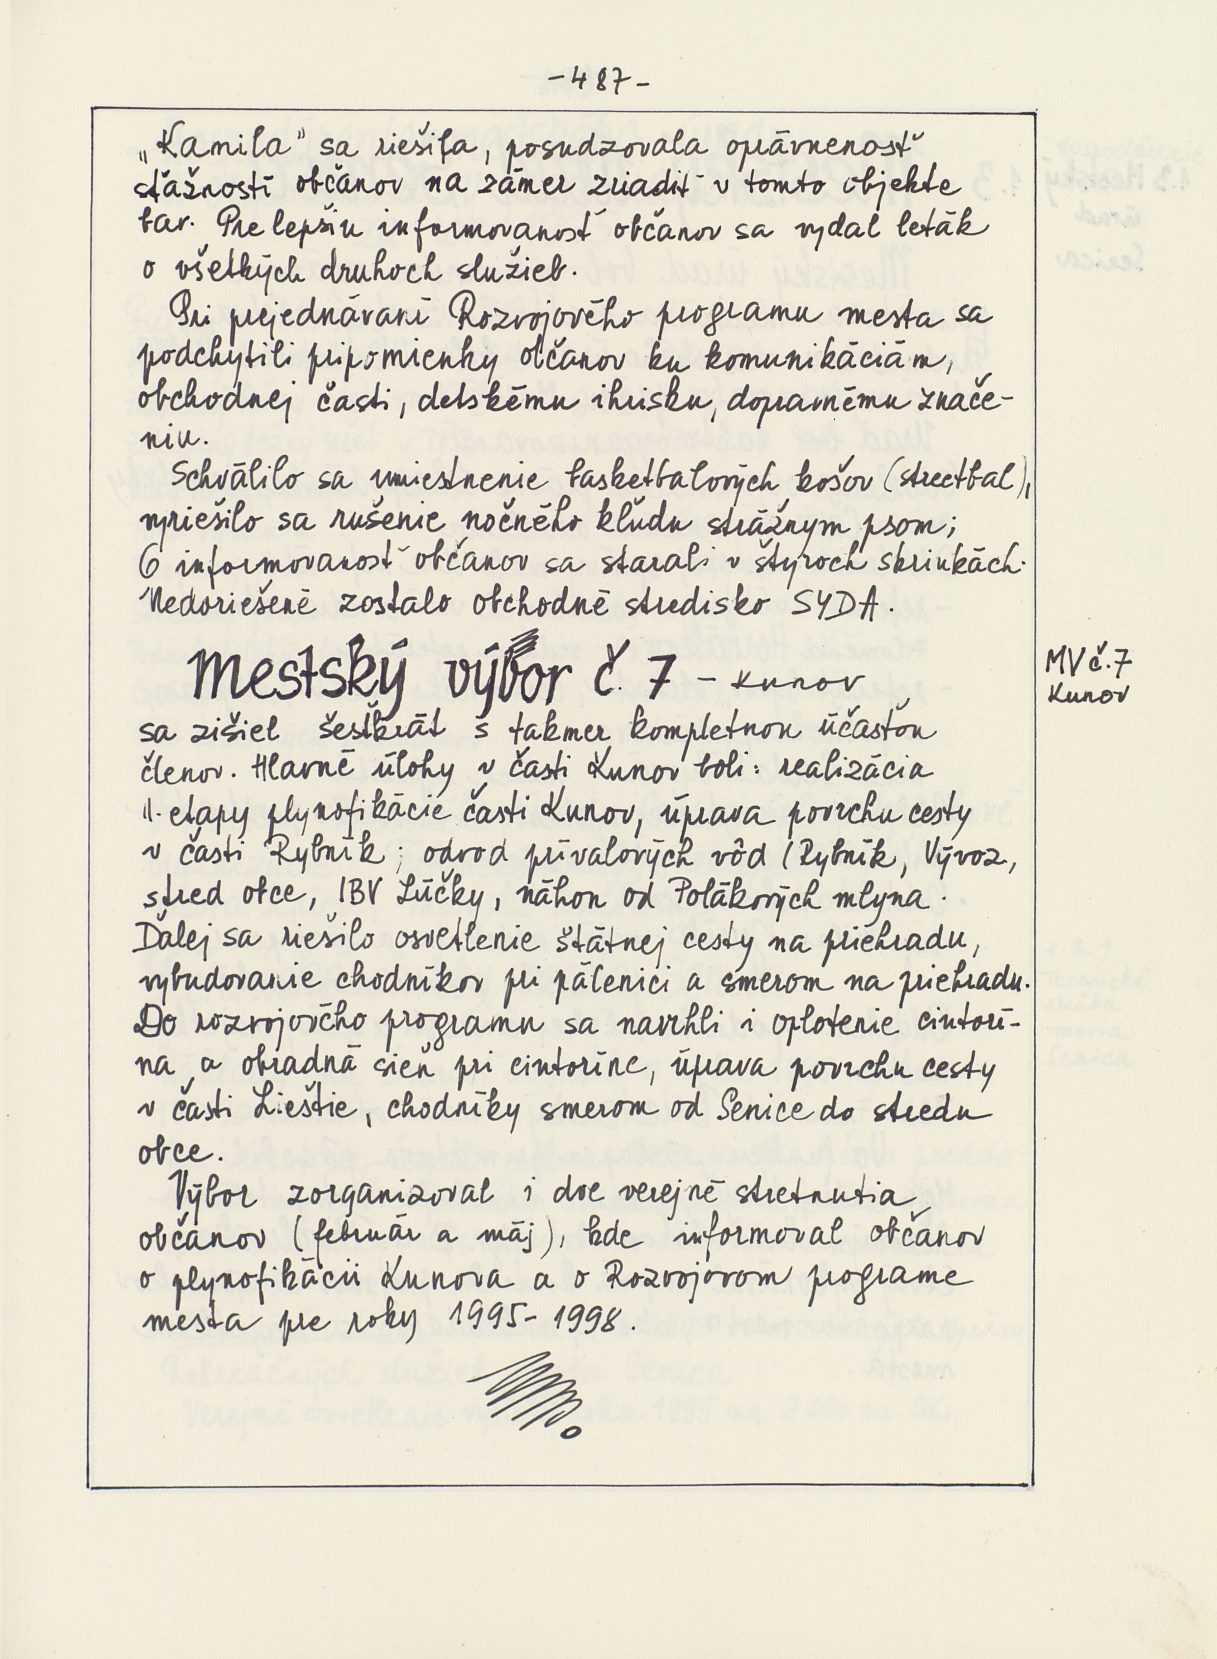 -487-
„Kamila" sa riešila, posudzovala oprávnenosť
sťažností občanov na zámer zriadiť v tomto objekte
bar. Pre lepšiu informovanosť občanov sa vydal leták
o všetkých druhoch služieb.
Pri prejednávaní Rozvojového programu mesta sa
podchytili pripomienky občanov ku komunikáciám,
obchodnej časti, detskému ihrisku, dopravnému znače-
niu.
Schválilo sa umiestnenie basketbalových košov (streetbal),
vyriešilo sa rušenie nočného kľudu strážnym psom;
O informovanosť občanov sa starali v štyroch skrinkách.
Nedoriešené zostalo obchodné stredisko SYDA.
Mestský výbor č. 7 - Kunov
MV č.7
Kunov
sa zišiel šesťkrát s takmer kompletnou účasťou
členov. Hlavné úlohy v časti Kunov boli: realizácia
II. etapy plynofikácie časti Kunov, úprava povrchu cesty
v časti Rybník; odvod prívalových vôd (Rybník, Vývoz,
stred obce, IBV Lúčky, náhon od Polákových mlyna.
Ďalej sa riešilo osvetlenie štátnej cesty na priehradu,
vybudovanie chodníkov pri pálenici a smerom na priehradu.
Do rozvojového programu sa navrhli i oplotenie cintorí-
na a obradná sieň pri cintoríne, úprava povrchu cesty
v časti Lieštie, chodníky smerom od Senice do stredu
obce.
Výbor zorganizoval i dve verejné stretnutia
občanov (február a máj), kde informoval občanov
o plynofikácii Kunova a o Rozvojovom programe
mesta pre roky 1995-1998.